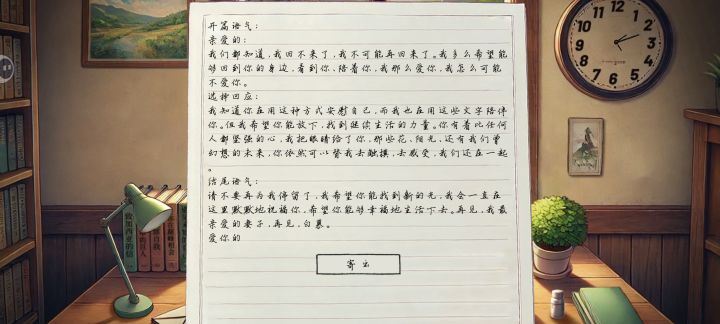 开篇语气：
亲爱的：
我们都知道，我回不来了，我不可能再回来了。我多么希望能
够回到你的身边，看到你、陪着你，我那么爱你，我怎么可能
不爱你。
选择回应：
我知道你在用这种方式安慰自己，而我也在用这些文字陪伴
你。但我希望你能放下，找到继续生活的力量。你有着比任何
人都坚强的心，我把眼睛给了你，那些花、阳光，还有我们曾
幻想的未来，你依然可以替我去触摸，去感受，我们还在一起
。
结尾语气：
请不要再为我停留了，我希望你能找到新的光，我会一直在
这里默默地祝福你，希望你能够幸福地生活下去。再见，我最
亲爱的妻子，再见，白慕。
爱你的
寄出
12
1
2
3
4
5
6
7
8
9
10
11